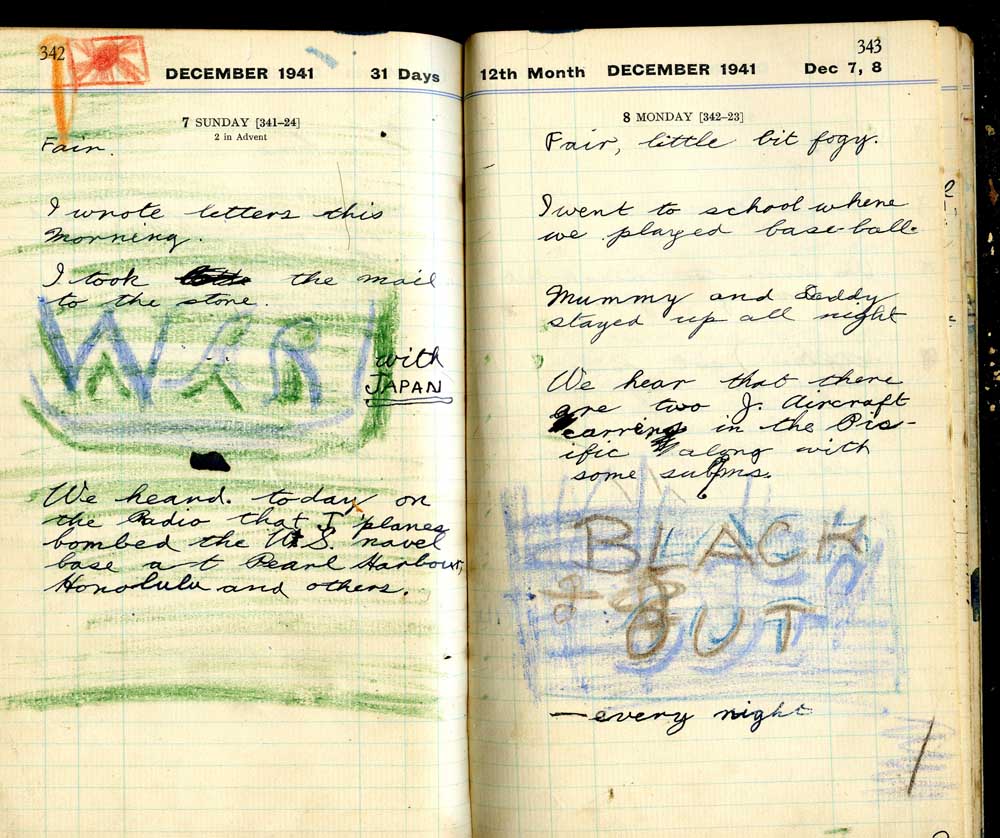 342
DECEMBER 1941 31 Days
7 SUNDAY [341–24]
2 in Advent
Fair.
I wrote letters this
morning.
I took the mail
to the store.
WAR
with
JAPAN
We heard. today on
the Radio that J planes
bombed the U.S. navel
base at Pearl Harbour,
Honolulu and others.
343
12th Month DECEMBER 1941 Dec 7, 8
8 MONDAY [342–23]
Fair, little bit fogy.
I went to school where
we played baseball.
Mummy and Daddy
stayed up all night
We hear that there
are two J. Aircraft
carrers in the Pis-
ific along with
some subms.
BLACK
OUT
—every night